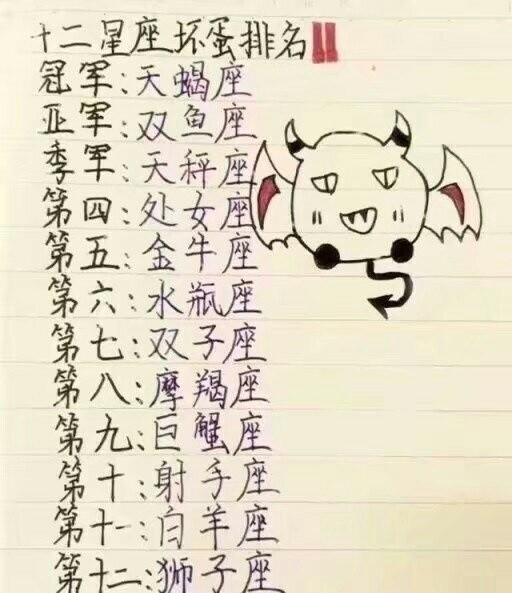 十二星座坏蛋排名!!
冠军:天蝎座
亚军:双鱼座
季军:天秤座
第四:处女座
第五:金牛座
第六:水瓶座
第七:双子座
第八:摩羯座
第九:巨蟹座
第十:射手座
第十一:白羊座
第十二:狮子座